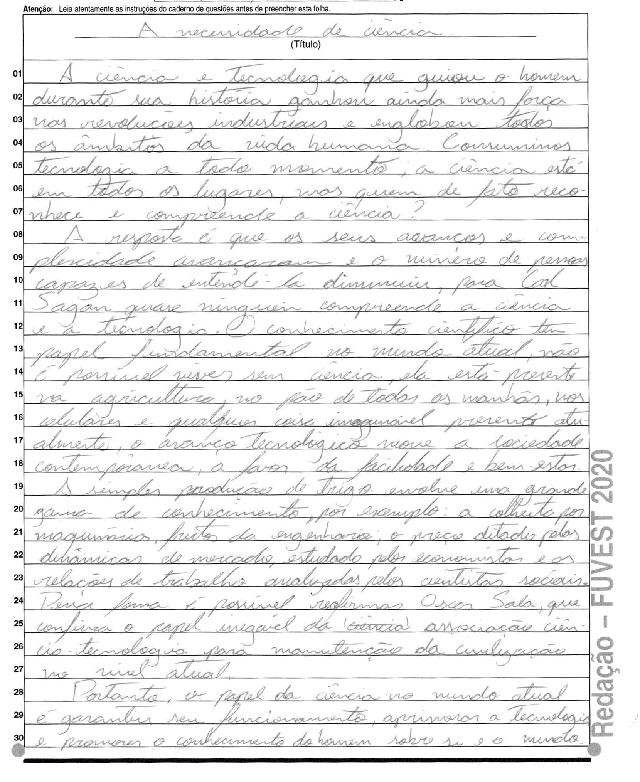 Atenção: Leia atentamente as instruções do caderno de questões antes de preencher esta folha.
A necessidade de ciência
(Título)
01 A ciência e tecnologia que guiou o homem
02 durante sua história ganhou ainda mais força
03 nas revoluções industriais e englobou todos
04 os âmbitos da vida humana Consumimos
05 tecnologia a todo momento, a ciência está
06 em todos os lugares, mas quem de fato reco-
07 nhece e compreende a ciência?
08 A resposta é que os seus avanços e com-
09 plexidade avançaram e o número de pessoas
10 capazes de entendê-la diminuiu, para Carl
11 Sagan quase ninguém compreende a ciência
12 e a tecnologia. O conhecimento científico tem
13 papel fundamental no mundo atual, não
14 é possível viver sem ciência, ela está presente
15 na agricultura, no pão de todas as manhãs, nos
16 celulares e qualquer coisa imaginável presente atu
17 almente, o avanço tecnológico move a sociedade
18 contemporânea, a favor da facilidade e bem-estar
19 A simples produção de trigo envolve uma grande
20 gama de conhecimento, por exemplo: a colheita por
21 maquinários, frutos da engenharia, o preço ditados pelas
22 dinâmicas de mercado, estudado pelos economistas e as
23 relações de trabalho analisadas pelos cientistas sociais.
24 Dessa forma é possível reafirmar Oscar Sala, que
25 confirma o papel inegável da (ciência) associação ciên-
26 cia-tecnologia para manutenção da civilização
27 no nível atual.
28 Portanto, o papel da ciência no mundo atual
29 é garantir seu funcionamento, aprimorar a tecnologia
30 e promover o conhecimento do homem sobre si e o mundo
Redação – FUVEST 2020